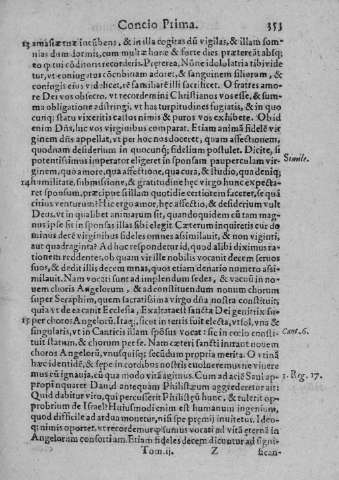 Concio Prima. 353
13 amasiæ tuæ incũbens, & in illa cogitas dũ vigilas, & illam som-
nias dum dormis, cum multæ horæ & forte dies prætereãt absq;
eo q tui cõditoris recorderis. Pręterea, Nũne idololatria tibi vide
tur, vt coniugatus cõcubinam adoret, & sanguinem filiorum, &
coniugis eius vidilicet, rê familiarê illi sacrificet. O fratres amo-
re Dei vos obsecro, vt recordemini Christianos vos esse, & sum-
ma obligatione adstringi, vt has turpitudines fugiatis, & in quo
cunq; statu vixeritis castos nimis & puros vos exhibete. Ob id
enim Dñs, hæc vos virginibus comparat. Etiam animã fidelê vir
ginem dñs appellat, vt per hoc nos doceret, quam affectionem,
quodnam desiderium in quocunq; fidelium postulet. Dicite, si
potentissimus imperator eligeret in sponsam pauperculam vir-
Simile.
ginem, quo amore, qua affectione, qua cura, & studio, qua deniq;
14 humilitate, submissione, & gratitudine hęc virgo hunc expecta-
ret sponsum, præcipue si illam quotidie certiorem faceret, se quã
citius venturum? Hic ergo amor, hęc affectio, & desiderium vult
Deus, vt in qualibet animarum sit, quandoquidem cũ tam mag-
nus ipse sit in sponsas illas sibi elegit. Cæterum inquiretis cur do
minus decê virginibus fideles omnes assimilauit, & non viginti,
aut quadraginta? Ad hoc respondetur id, quod alibi diximus ra-
tionem reddentes, ob quam vir ille nobilis vocauit decem seruos
suos, & dedit illis decem mnas, quos etiam denario numero assi-
milauit. Nam vocati sunt ad implendum sedes, & vacuũ in no-
uem choris Angelorum, & ad constituendum nonum chorum
super Seraphim, quem sacratissima virgo dña nostra constituit,
quia vt de ea canit Ecclesia, Exaltata est sancta Dei genitrix su-
15 per choros Angelorũ. Isaq; sicut in terris fuit electa, vt sol, vna &
singularis, vt in Canticis illam spõsus vocat: sic in cœlo consti-
Cant. 6.
tuit statum, & chorum per se. Nam cæteri sancti intrant nouem
choros Angelorũ, vnusquisq; secũdum propria merita. O vtinã
hæc identidê, & sępe in cordibus nostris euolueremus ne viuere
mus cũ ignauia, cũ qua modo vitã agimus. Cum ad aciê Saul ap-
1. Reg. 17.
propinquaret Dauid antequam Philistæum aggrederetur ait:
Quid dabitur viro, qui percusserit Philistęũ hunc, & tulerit op-
probrium de Israel? Huiusmodi enim est humanum ingenium,
quod difficile ad ardua monetur, nisi spe pręmij inuitetur. Ideo-
q; nimis oportet, vt recordemur q sumus vocati ad vitã æternã in
Angelorum consortiam. Etiam fideles decem dicuntur ad signi-
Tom. ij. Z fican-